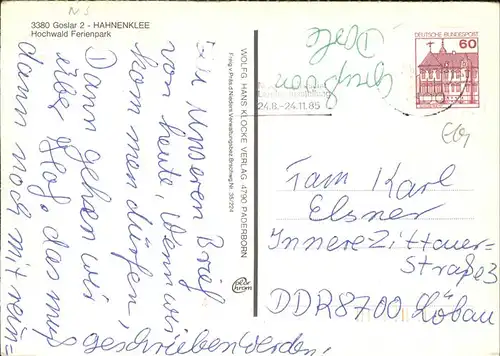 3380 Goslar 2 - HAHNENKLEE
Hochwald Ferienpark
Ein Unseren Brief
von heute, Wenn wir
kommen dürfen,
Dann gehen wir
das muß
dann noch mit rein=
geschrieben werden,
WOLFG. HANS KLOCKE VERLAG 4790 PADERBORN
Freig. v. Präs. d. Nieders. Verwaltungsbez. Brschwg. Nr.
DEUTSCHE BUNDESPOST
60
24.8.-24.11.85
Fam Karl
Elsner
Innere-Zittauer-
Straße 3
DDR 8700 Löbau